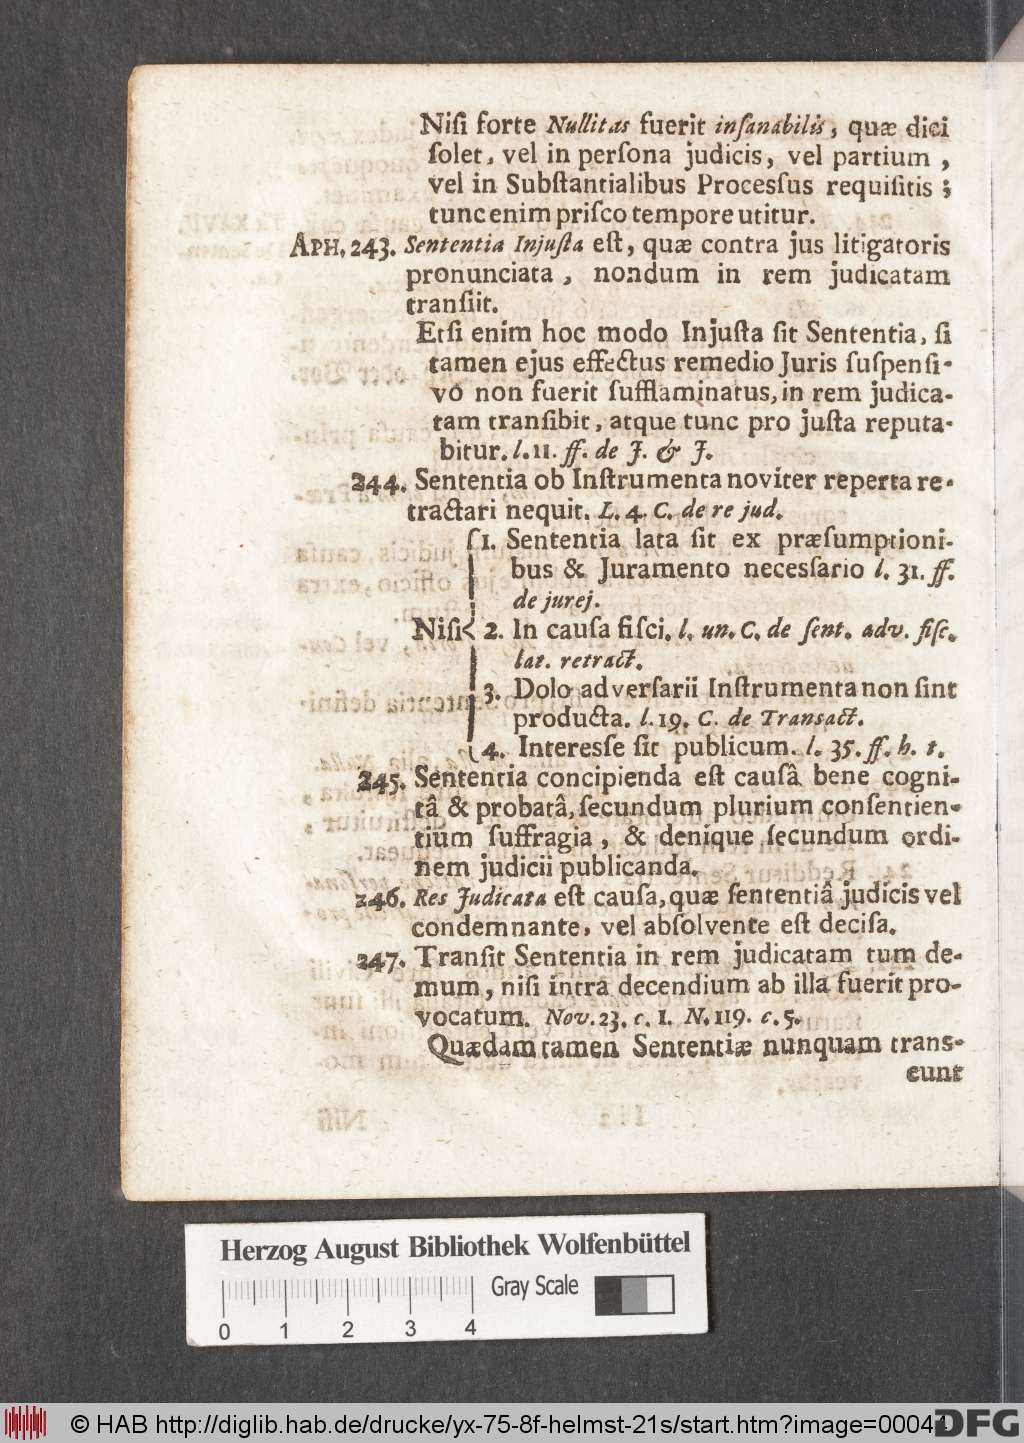 Niſi forte Nullitas fuerit inſanabilis, quæ dici
ſolet, vel in perſona judicis, vel partium,
vel in Subſtantialibus Proceſſus requiſitis;
tunc enim priſco tempore utitur.
APH. 243. Sententia Injuſta eſt, quæ contra jus litigatoris
pronunciata, nondum in rem judicatam
tranſiit.
Etſi enim hoc modo Injuſta ſit Sententia, ſi
tamen ejus effectus remedio Juris ſuſpenſi-
vo non fuerit ſufflaminatus, in rem judica-
tam tranſibit, atque tunc pro juſta reputa-
bitur. l. 11. ff. de J. & J.
244. Sententia ob Inſtrumenta noviter reperta re-
tractari nequit. L. 4. C. de re jud.
1. Sententia lata ſit ex præſumptioni-
bus & Juramento neceſſario l. 31. ff.
de jurej.
Niſi 2. In cauſa fiſci. l. un. C. de ſent. adv. fiſc.
lat. retract.
3. Dolo adverſarii Inſtrumenta non ſint
producta. l. 19. C. de Transact.
4. Intereſſe ſit publicum. l. 35. ff. h. t.
245. Sententia concipienda eſt cauſâ bene cogni-
tâ & probatâ, ſecundum plurium conſentien-
tium ſuffragia, & denique ſecundum ordi-
nem judicii publicanda.
246. Res Judicata eſt cauſa, quæ ſententiâ judicis vel
condemnante, vel abſolvente eſt deciſa.
247. Tranſit Sententia in rem judicatam tum de-
mum, niſi intra decendium ab illa fuerit pro-
vocatum. Nov. 23. c. 1. N. 119. c. 5.
Quædam tamen Sententiæ nunquam trans-
eunt
Herzog August Bibliothek Wolfenbüttel
Gray Scale
0 1 2 3 4
© HAB http://diglib.hab.de/drucke/yx-75-8f-helmst-21s/start.htm?image=00044
DFG